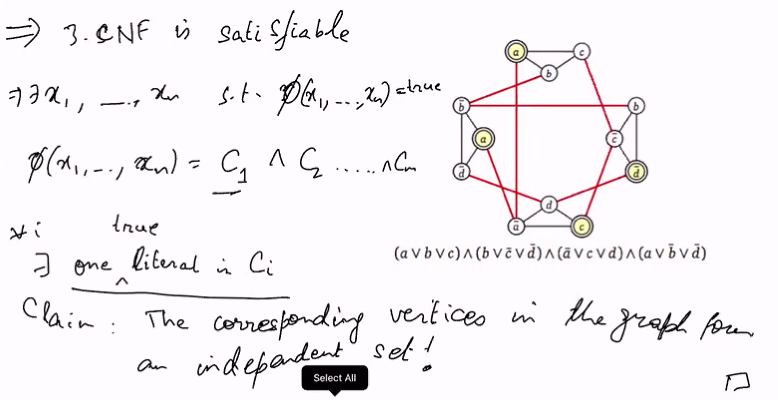 ⇒ 3-CNF is satisfiable
⇒ ∃ x₁, ---, xₙ s.t. ϕ(x₁,...,xₙ) = true
ϕ(x₁,..., xₙ) = C₁ ∧ C₂ ..... ∧ Cₘ
∀i true
∃ one ^ literal in Ci
Claim: The corresponding vertices in the graph form
an independent set!
a c
b
b̄ b
a c̄
d̄ d̄
d
ā c
(a ∨ b ∨ c) ∧ (b ∨ c̄ ∨ d̄) ∧ (ā ∨ c ∨ d) ∧ (a ∨ b̄ ∨ d̄)
Select All